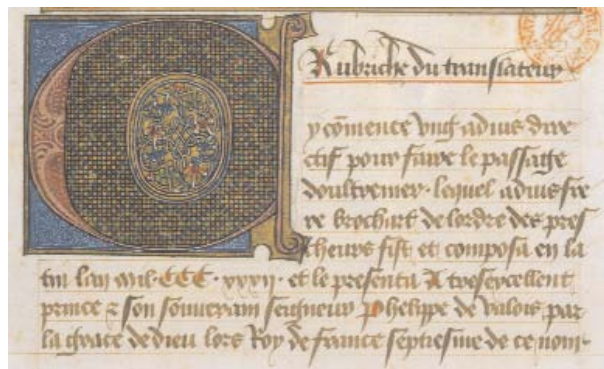 Rubriche du translateur
Cy cōmence vng aduis dire
ctif pour faire le passaige
doultremer · lequel aduis fre
re brochart de lordre des pres
cheurs fist et composa en la
tin lan mil · CCC · xxxij · et le presenta A tresexcellent
prince & son souuerain seigneur phelippe de valois par
la grace de dieu lors Roy de france septiesme de ce nom ·